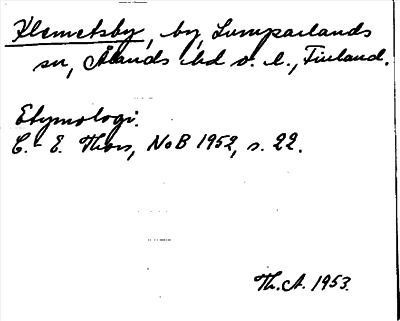 Klemetsby, by, Lumparlands
sn, Ålands hd o. l., Finland.
Etymologi.
C.-E. Thors, NoB 1952, s. 22.
Th. A. 1953.